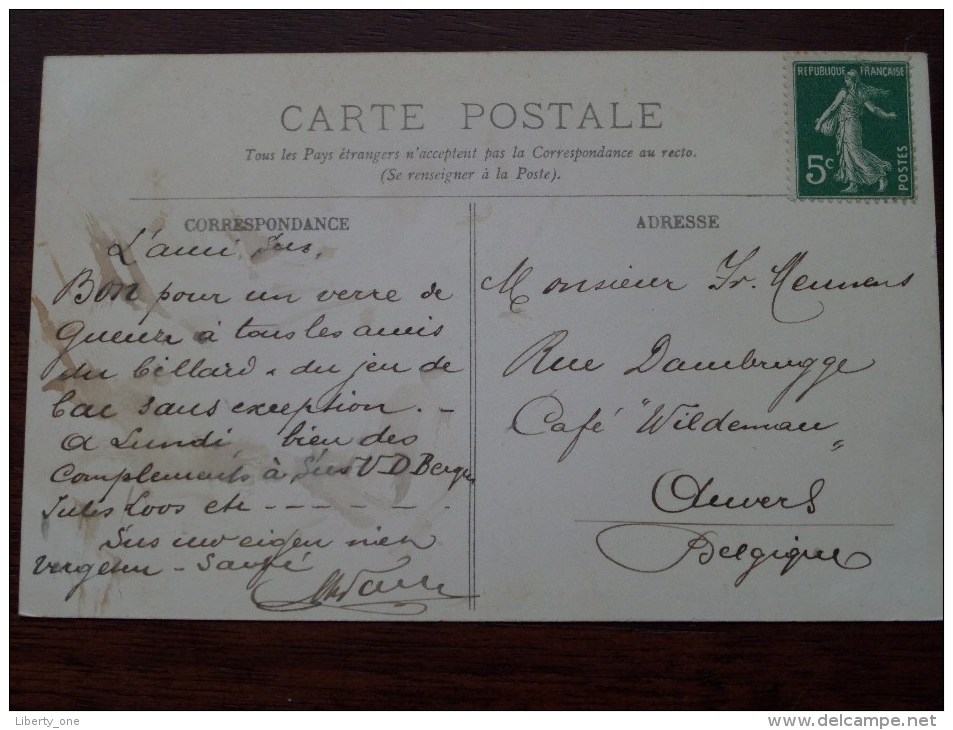 CARTE POSTALE
Tous les Pays étrangers n'acceptent pas la Correspondance au recto.
(Se renseigner à la Poste).
REPUBLIQUE FRANÇAISE
5c
POSTES
CORRESPONDANCE
L'ami Sus.
Bon pour un verre de
Gueuze à tous les amis
du billard - du jeu de
bac sans exception. -
A Lundi bien des
complements à Sus V.D. Bergh
Jules Loos etc - - - - - -
Sus uw eigen niet
vergeten - Santé
ADRESSE
Monsieur Fr. Mennens
Rue Dambrugge
Café "Wildeman"
Anvers
Belgique
Liberty_one
www.delcampe.net